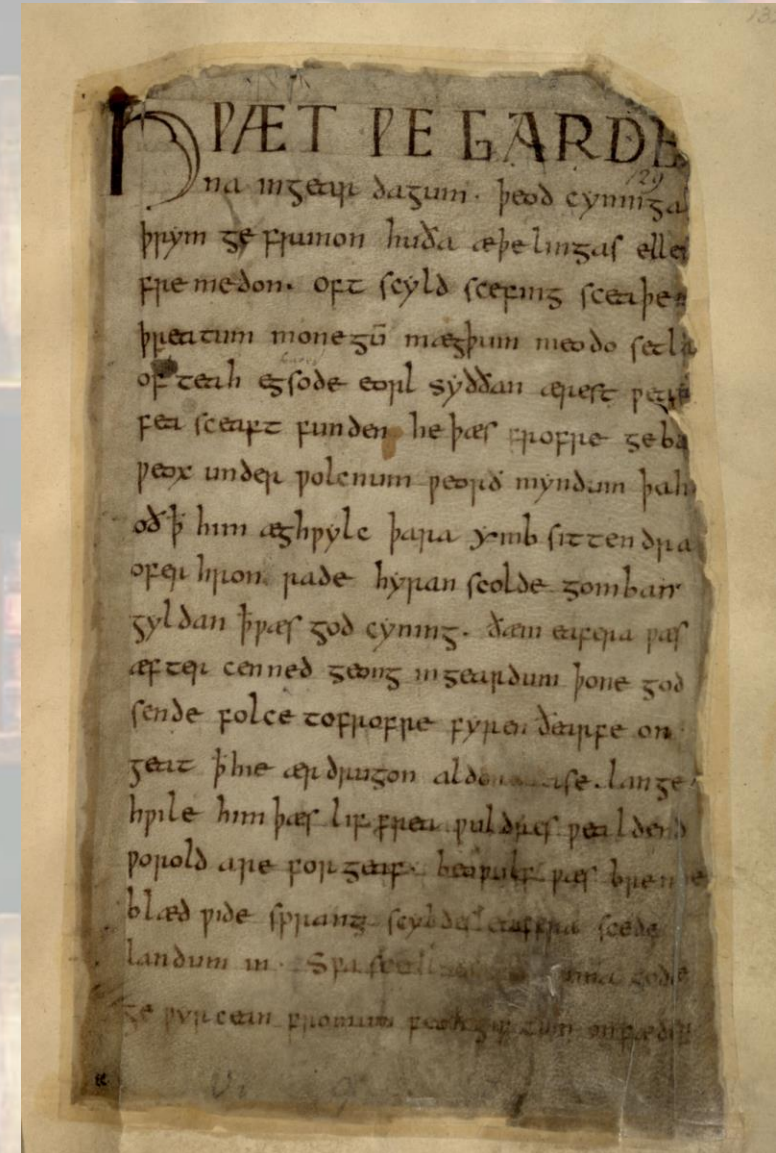 HǷÆT ǷE GARDE
129
na ingear dagum. þeod cyninga
þrym ge frunon huða æþelingas elle
fremedon. oft scyld scefing sceaþe
þreatum monegū mægþum meodo setla
of teah egsode eorl syððan ærest ƿear
fea sceaft funden he þæs frofre geba
ƿeox under ƿolcnum ƿeorð myndum þah
oð ꝥ him æghƿylc þara ymb sittendra
ofer hron rade hyran scolde gomban
gyldan ꝥ ƿæs god cyning. ðæm eafera ƿæs
æfter cenned geong ingeardum þone god
sende folce tofrofre fyren ðearfe on
geat ꝥ hie ær drugon aldor ase. lange
hƿile him þæs lif frea ƿuldres ƿealdend
ƿorold are for geaf. beoƿulf ƿæs breme
blæd ƿide sprang scyldes eafera scede
landum in. Sƿa sceal guma gode
ge ƿyrcean fromum feoh giftum on fæder